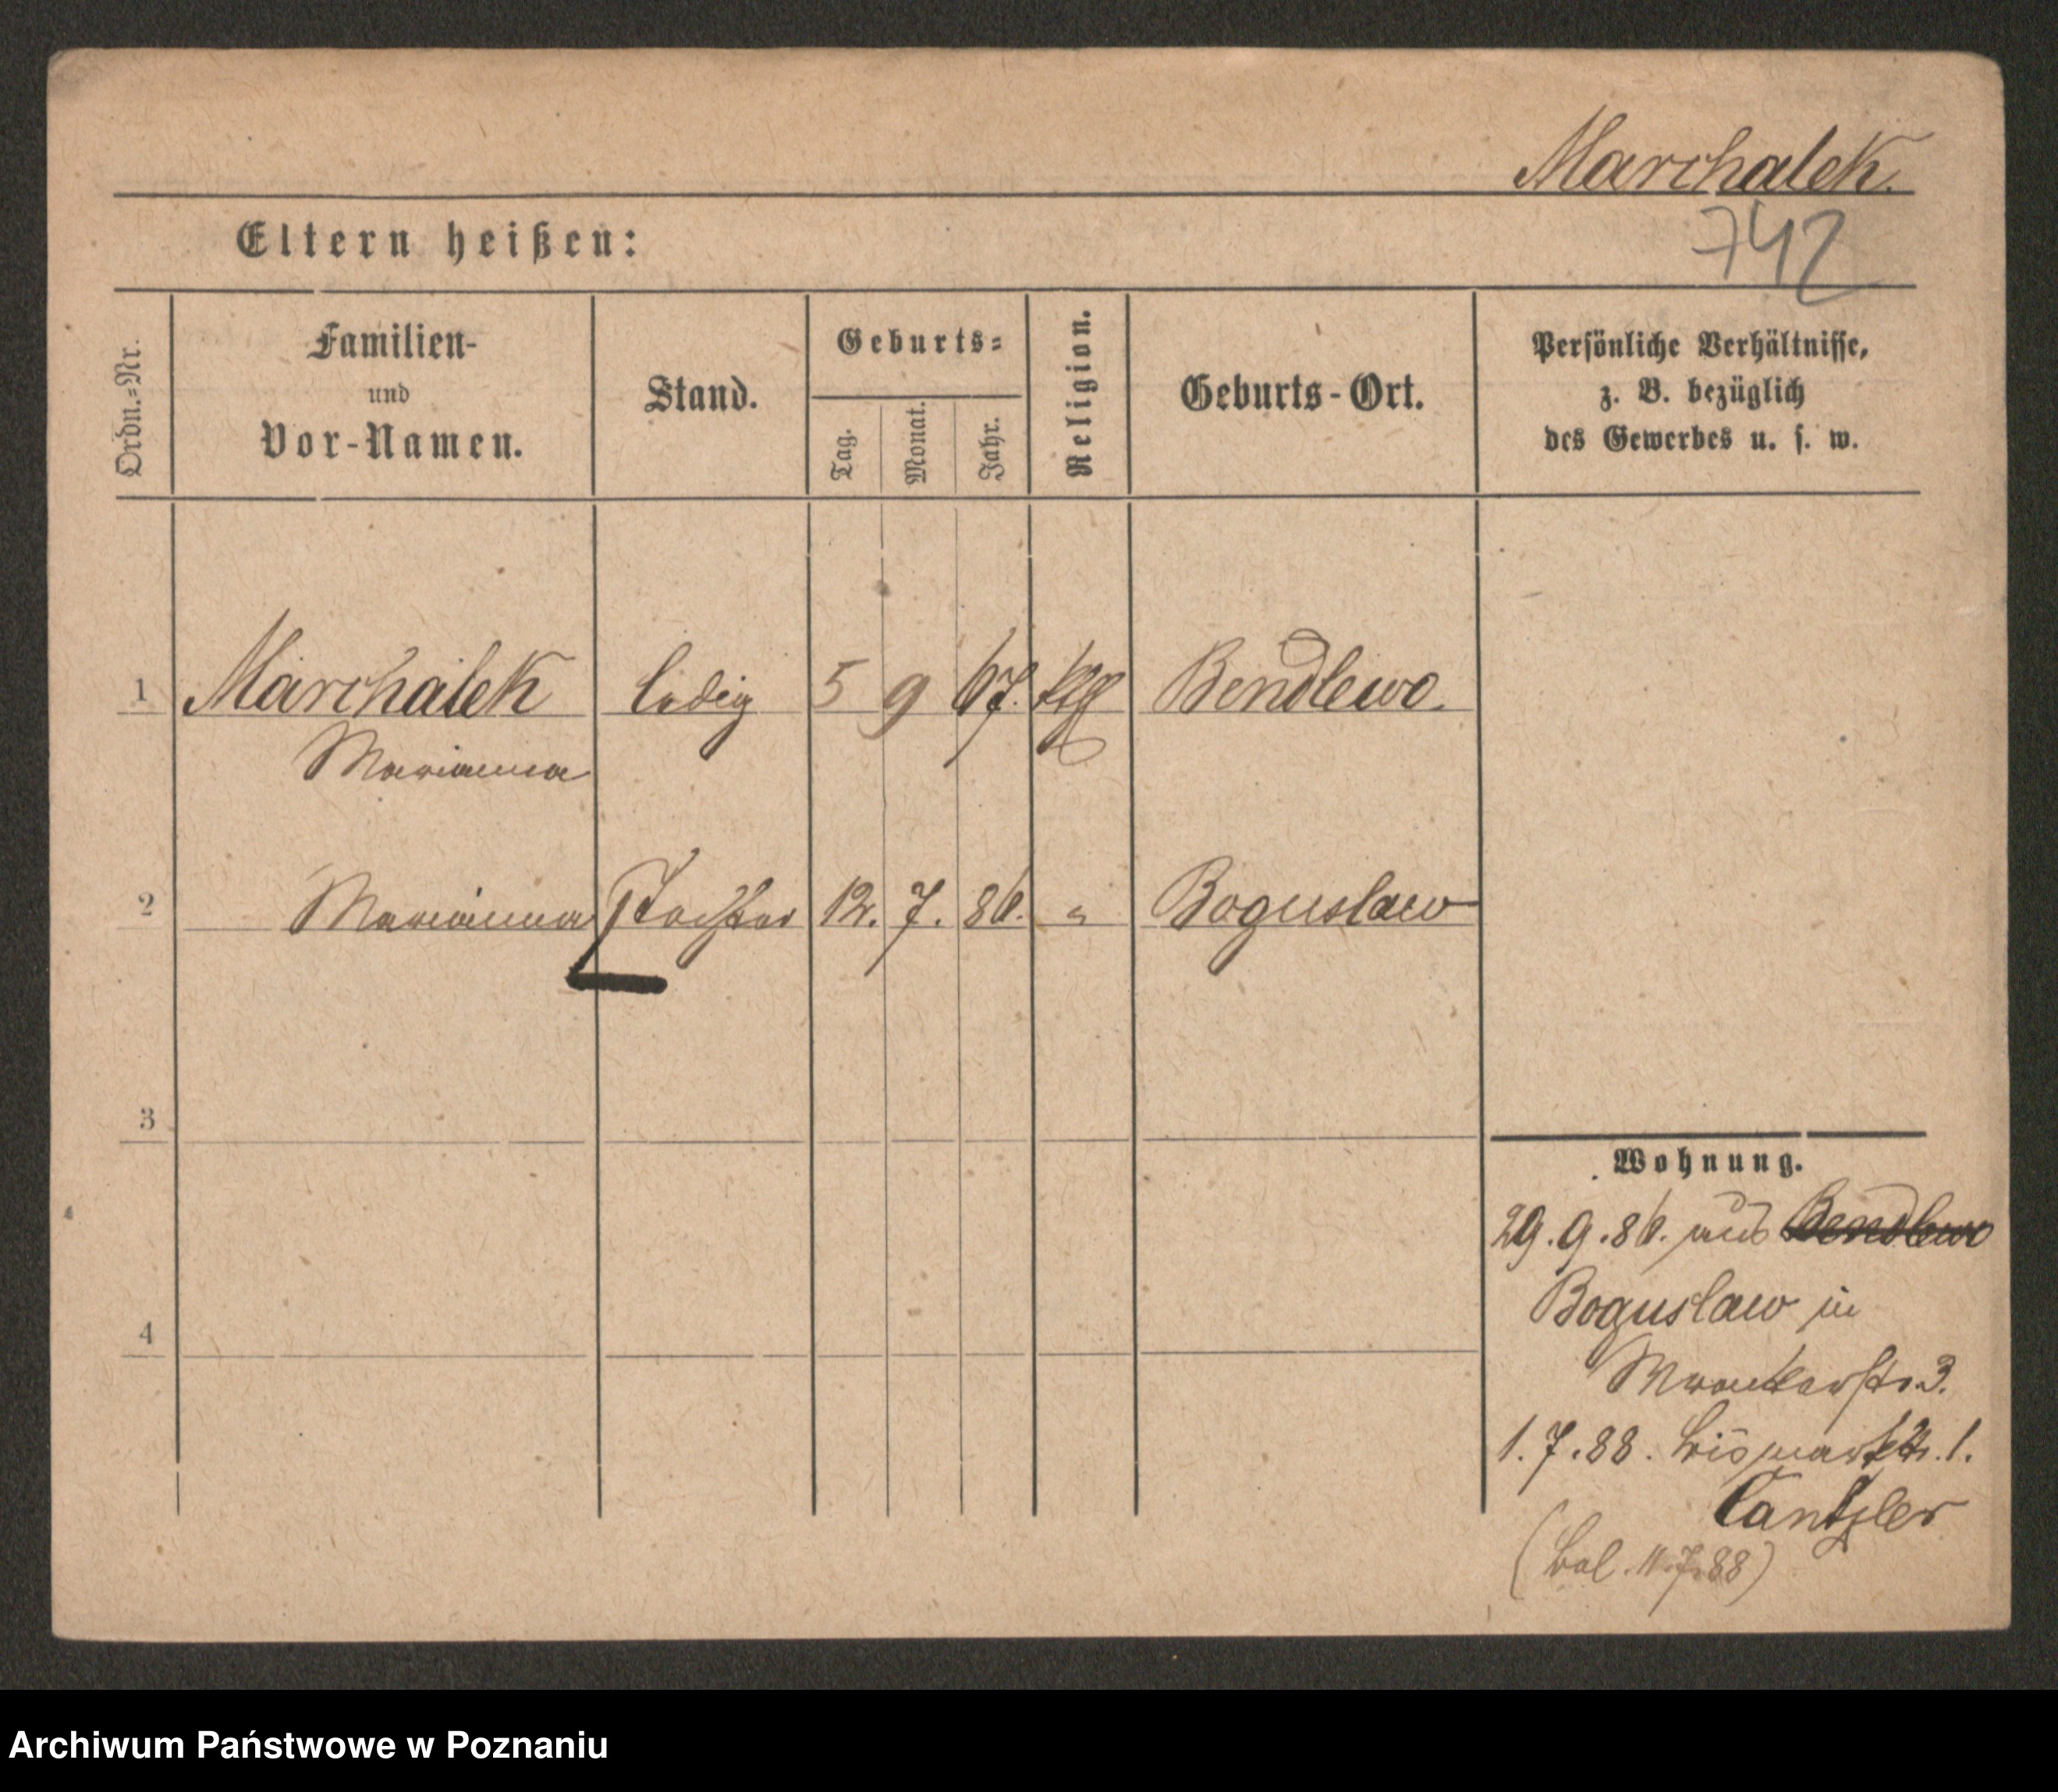 Marchalek.
742
Eltern heißen:
Ordn.=Nr.
Familien-
und
Vor-Namen.
Stand.
Geburts=
Tag.
Monat.
Jahr.
Religion.
Geburts-Ort.
Persönliche Verhältnisse,
z. B. bezüglich
des Gewerbes u. s. w.
1 Marchalek ledig 5 9 67. kth Bendlewo.
Marianna
2 Marianna Tochter 12. 7. 86. " Boguslaw
3
4
Wohnung.
29.9.86. aus Bendlewo
Boguslaw in
Wronkerstr. 3.
1.7.88. Bismarckstr. 1.
Cantzler
(Bol. 11.7.88)
Archiwum Państwowe w Poznaniu